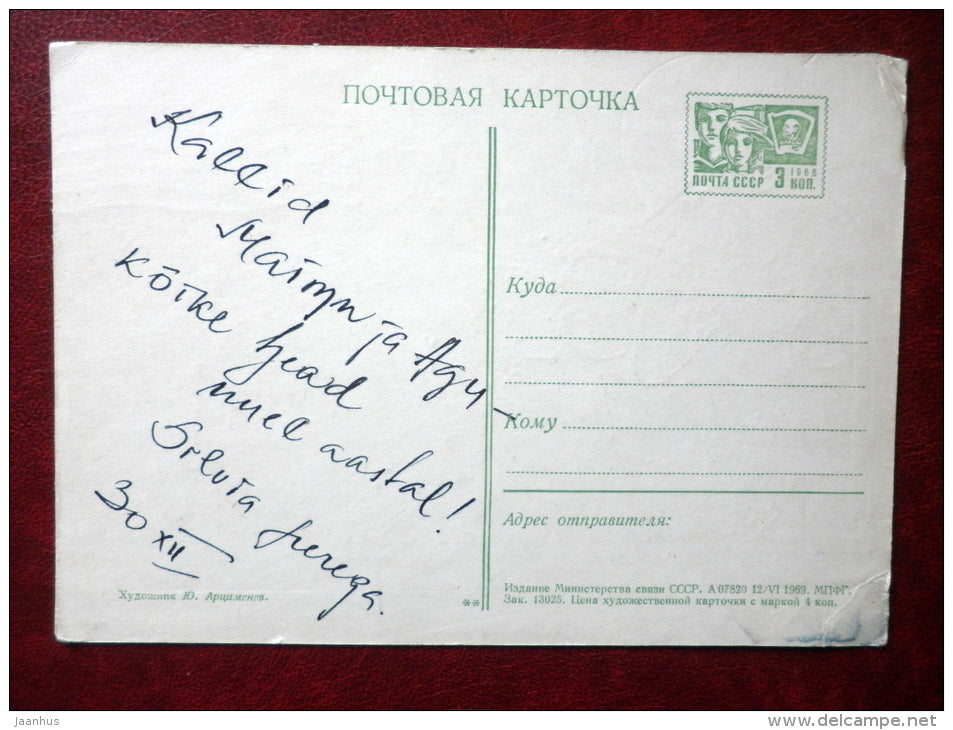 ПОЧТОВАЯ КАРТОЧКА
1966
ПОЧТА СССР 3 КОП.
Kallid
ja Agu –
kõike head
uuel aastal!
Silvia perega.
30 XII
Куда
Кому
Адрес отправителя:
Художник Ю. Арцименев.
**
Издание Министерства связи СССР. А 07820 12/VI 1969. МПФГ.
Зак. 13025. Цена художественной карточки с маркой 4 коп.
Jaanhus
www.delcampe.net